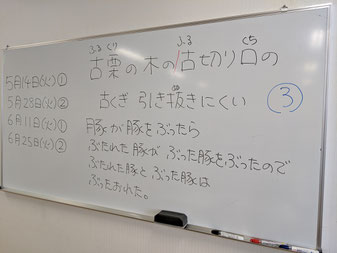 ふる くり ふる くち
古栗の木の古切り口の
古くぎ 引き抜きにくい ③
5月14日(火)①
5月28日(火)②
6月11日(火)①
6月25日(火)②
豚が豚をぶったら
ぶたれた豚が ぶった豚をぶったので
ぶたれた豚と ぶった豚は
ぶったおれた。